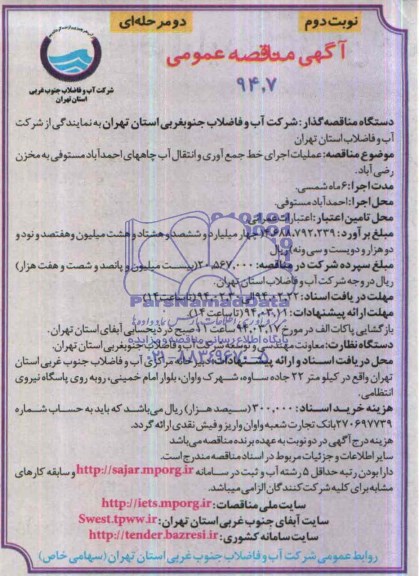 نوبت دوم
دو مرحله‌ای
آگهی مناقصه عمومی
۹۴،۷
شرکت آب و فاضلاب جنوب غربی
استان تهران
دستگاه مناقصه گذار: شرکت آب و فاضلاب جنوبغربی استان تهران به نمایندگی از شرکت
آب و فاضلاب استان تهران
موضوع مناقصه: عملیات اجرای خط جمع آوری و انتقال آب چاههای احمدآباد مستوفی به مخزن
رضی آباد.
مدت اجرا: ۶ ماه شمسی.
محل اجرا: احمدآباد مستوفی.
محل تامین اعتبار: اعتبارات عمرانی.
مبلغ برآورد: ۴،۶۸۸،۷۹۲،۲۳۹ (چهار میلیارد و ششصد و هشتاد و هشت میلیون و هفتصد و نود و
دو هزار و دویست و سی ونه) ریال
مبلغ سپرده شرکت در مناقصه: ۲۰،۵۶۷،۰۰۰ (بیست میلیون و پانصد و شصت و هفت هزار)
ریال در وجه شرکت آب و فاضلاب استان تهران.
مهلت دریافت اسناد: (تا ساعت ۱۴)
مهلت ارائه پیشنهادات: ۹۴،۰۳،۱۶ (تا ساعت ۱۴)
بازگشایی پاکات الف در مورخ ۹۴،۰۳،۱۷ ساعت ۱۱ صبح در ذیحسابی آبفای استان تهران.
دستگاه نظارت: معاونت مهندسی و توسعه شرکت آب و فاضلاب جنوبغربی استان تهران.
محل دریافت اسناد و ارائه پیشنهادات: دبیرخانه مرکزی آب و فاضلاب جنوب غربی استان
تهران واقع در کیلو متر ۲۲ جاده ساوه، شهرک واوان، بلوار امام خمینی، روبه روی پاسگاه نیروی
انتظامی.
هزینه خرید اسناد: ۳۰۰،۰۰۰ (سیصد هزار) ریال می‌باشد که باید به حساب شماره
۲۷۰۶۹۷۷۳۹ بانک تجارت شعبه واوان واریز و فیش نقدی ارائه گردد.
هزینه درج آگهی در دو نوبت به عهده برنده مناقصه می‌باشد
سایر اطلاعات و جزئیات مربوط در اسناد مناقصه مندرج است.
دارا بودن رتبه حداقل ۵ رشته آب و ثبت در سامانه http://sajar.mporg.ir و سابقه کارهای
مشابه برای کلیه شرکت کنندگان الزامی میباشد.
سایت ملی مناقصات: http://iets.mporg.ir
سایت آبفای جنوب غربی استان تهران: Swest.tpww.ir
سایت سامانه کشوری: http://tender.bazresi.ir
روابط عمومی شرکت آب و فاضلاب جنوب غربی استان تهران (سهامی خاص)
ParsNamadData
پایگاه اطلاع رسانی مناقصه و مزایده
۰۲۱-۸۸۳۴۹۶۷۰-۵